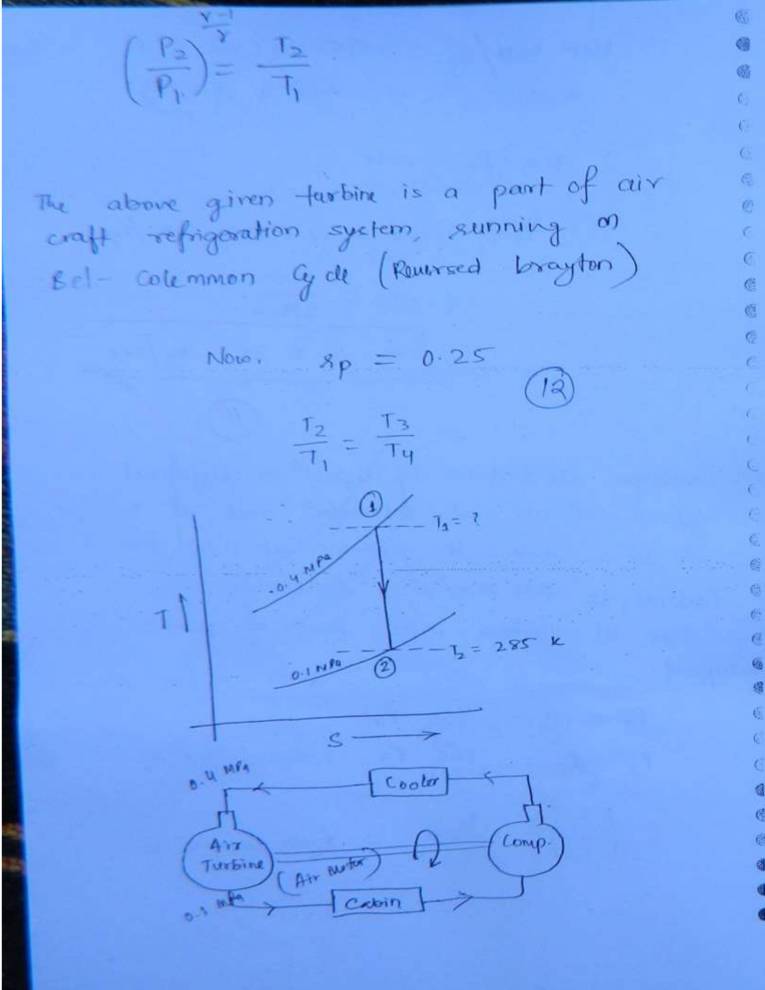 (P₂/P₁)^(γ-1/γ) = T₂/T₁
The above given turbine is a part of air
craft refrigeration system, running on
Bel- Colemmon Cycle (Reversed brayton)
Now. rp = 0.25
12
T₂/T₁ = T₃/T₄
1
T₁ = ?
0.4 MPa
T↑
0.1 MPa
2
T₂ = 285 K
S →
0.4 MPa
Cooler
Air
Turbine
(Air Motor)
Comp.
0.1 MPa
Cabin